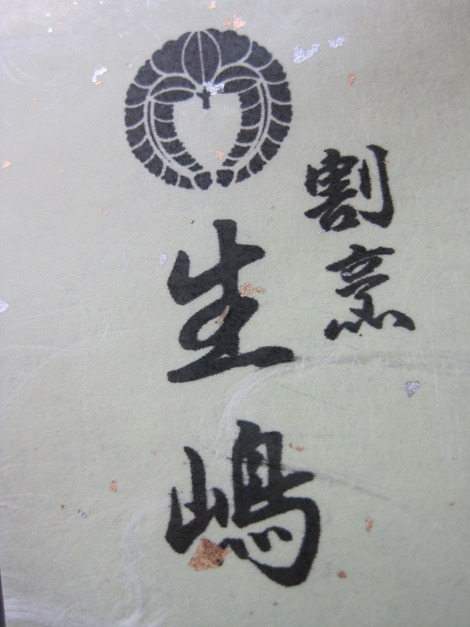 割烹
生嶋